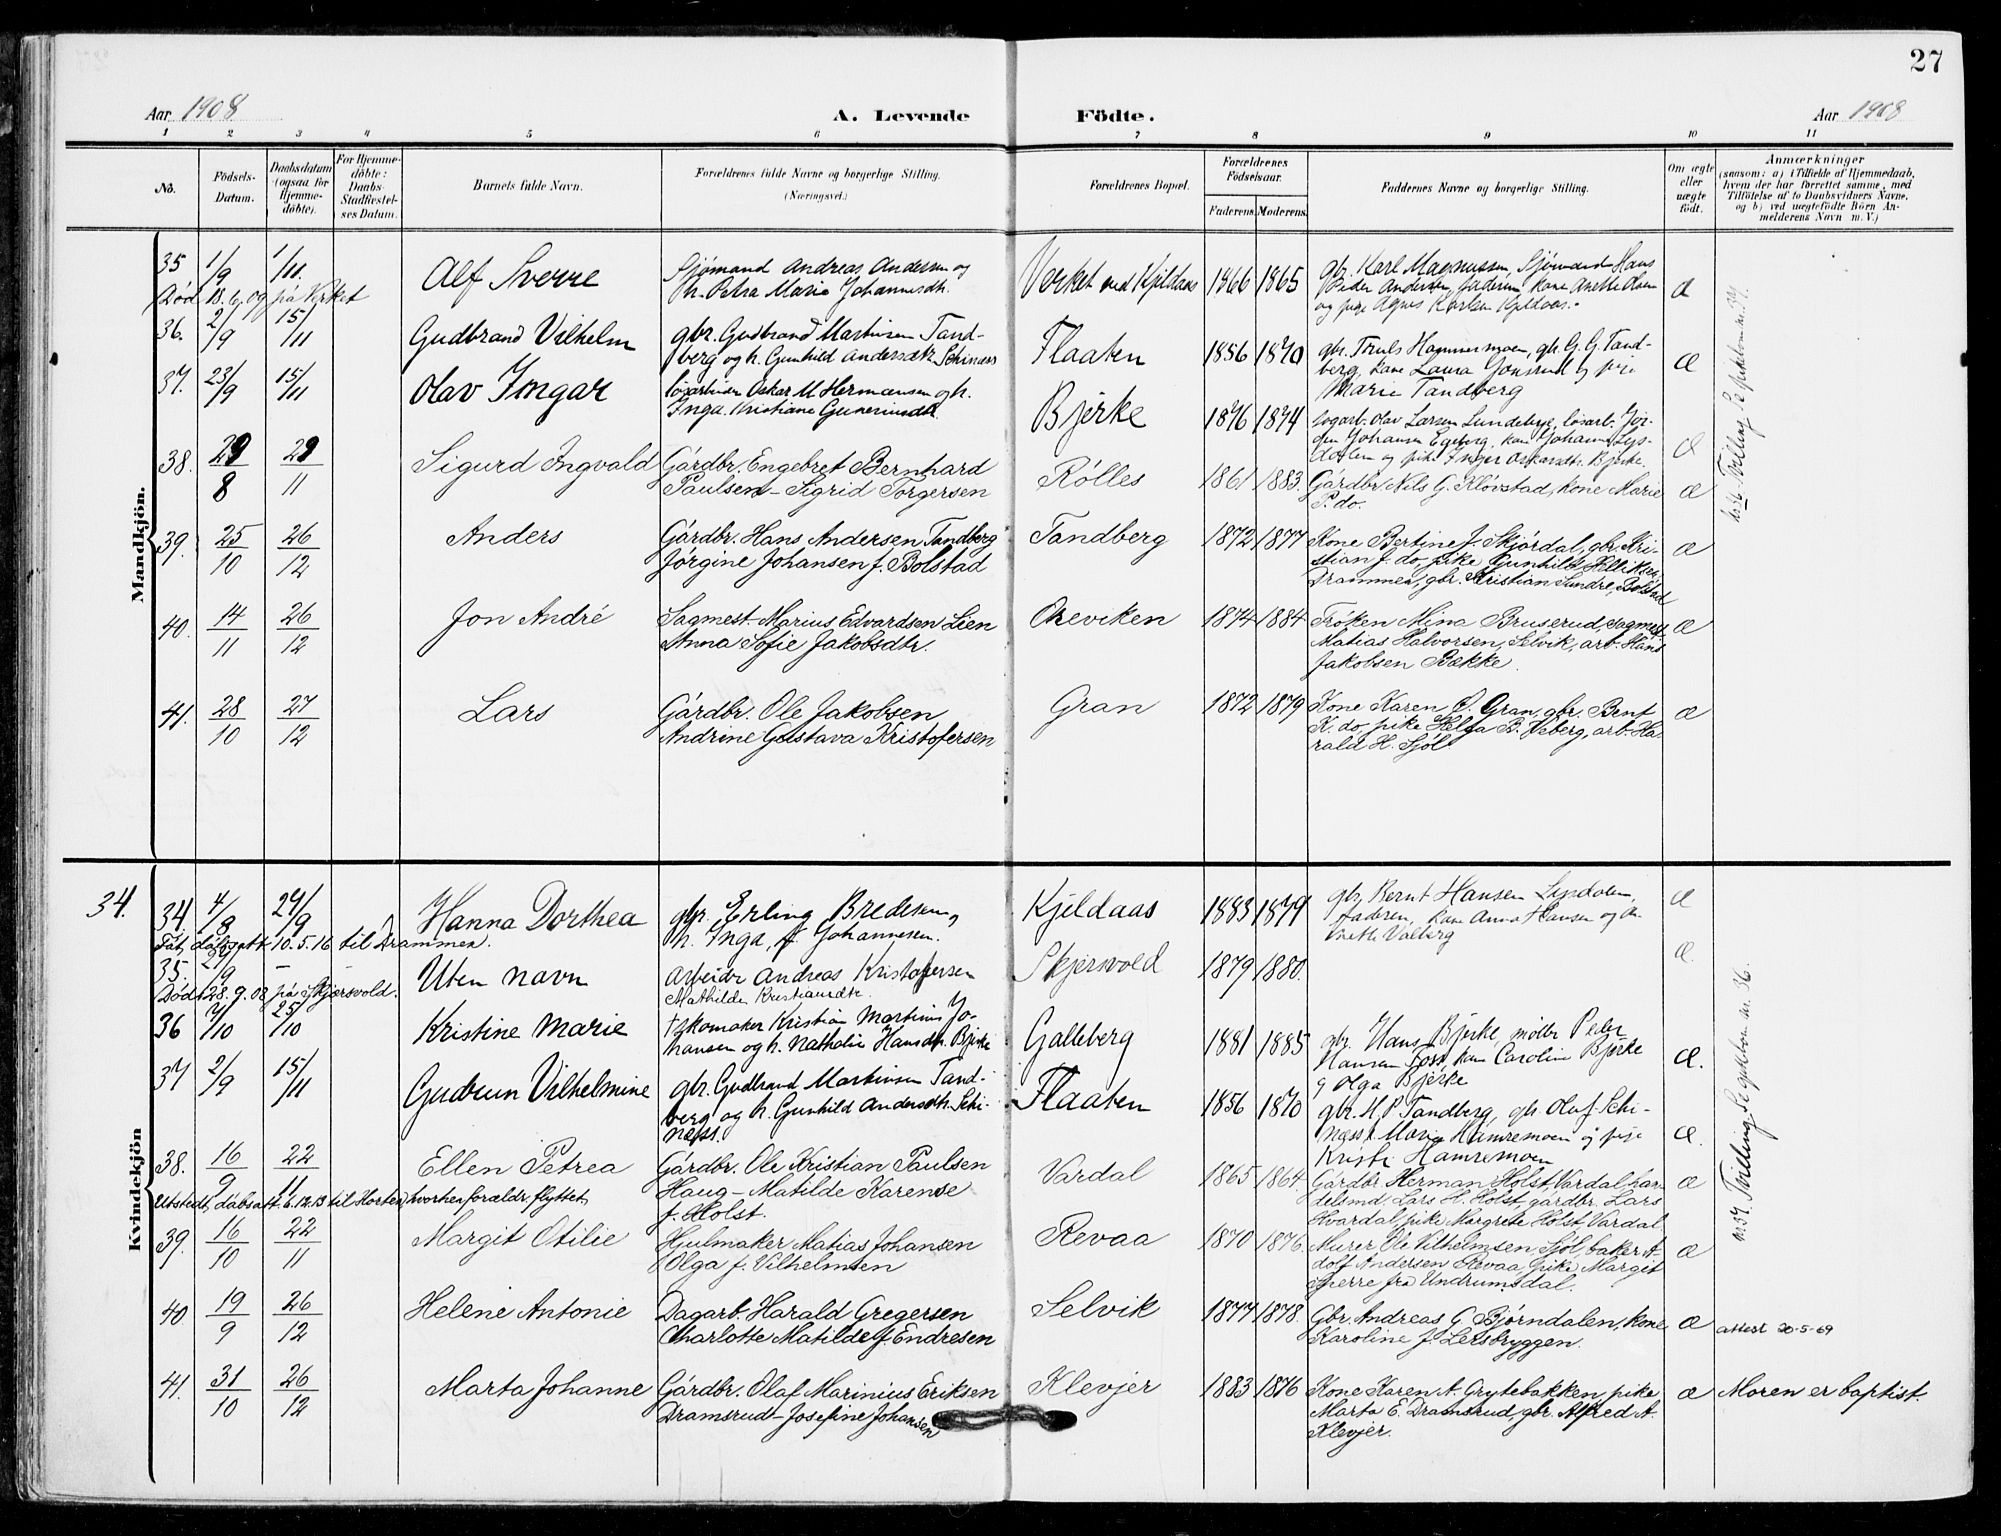 27
Aar 1908
A. Levende Födte.
Aar 1908
1 2 3 4 5 6 7 8 9 10 11
No.
Födsels-
Datum.
Daabsdatum
(ogsaa for
Hjemme-
döbte).
For Hjemme-
döbte:
Daabs-
Stadfæstel-
ses Datum.
Barnets fulde Navn.
Forældrenes fulde Navne og borgerlige Stilling.
(Næringsvei.)
Forældrenes Bopæl.
Forældrenes
Födselsaar.
Faderens. Moderens.
Faddernes Navne og borgerlige Stilling.
Om ægte
eller
uægte
födt.
Anmærkninger
(saasom: a) i Tilfælde af Hjemmedaab,
hvem der har forrettet samme, med
Tilföielse af to Daabsvidners Navne,
og b) ved uægtefödte Börn An-
melderens Navn m. V.)
Mandkjön.
35 1/9 1/11. Alf Sverre
Sjömand Andreas Andersen og
h. Petra Marie Johannesdtr.
Verket ved Kjeldaas 1866 1865
gbr. Karl Magnussen, Sjömand Hans
Peder Andersen, faderen, kone Anette Olsen
og pige Agnes Karlsen Kjeldaas.
æ
Död 13.6.09 på Verket
36. 2/9 15/11 Gudbrand Vilhelm
gbr. Gudbrand Martinsen Tand-
berg og h. Gunhild Andersdtr. Schinæss
Flaaten 1856 1870
gbr. Truls Hammermoen, gbr. G. G. Tand-
berg, kone Laura Jonsrud og pige
Marie Tandberg
æ
37. 23/9 15/11 Olav Ingar
løsarbeider Oskar M. Hermansen og h.
Inga Kristiane Gunerius
Bjerke 1876 1874
sagarb. Olav Larsen Lundebye, løsarb. Jör-
gen Johansen Egeberg, kone Johanne Lys-
dalen og pike Inger Oskarsdtr. Bjerke.
æ
38. 29/8 29/11 Sigurd Ingvald
Gårdbr. Engebret Bernhard
Paulsen – Sigrid Torgersen
Rölles 1861 1883.
Gårdbr. Nils G. Klövstad, kone Marie
P. do.
æ
39. 25/10 26/12 Anders
Gårdbr. Hans Andersen Tandberg
Jörgine Johansen f. Bolstad
Tandberg 1872 1877
Kone Bertine J. Skjördal, gbr. Kri-
stian J. do, pike Gunhild Killiksen
Drammen, gbr. Kristian Sundre, Bolstad
æ
40. 14/11 26/12 Jon André
Sagmest. Marius Edvardsen Lien
Anna Sofie Jakobsdtr.
Ekeviken 1874 1884
Fröken Mina Bruserud, sagmest.
Matias Halvorsen, Selvik, arb. Hans
Jakobsen Bække.
æ
41. 28/10 27/12 Lars
Gårdbr. Ole Jakobsen
Andrine Gustava Kristofersen
Gran 1872 1879
Kone Karen O. Gran, gbr. Bent
K. do, pike Helga B. Viberg, arb. Ha-
rald H. Sjöl
æ
no 36 Tvilling se pikebarn nr. 37.
Kvindekjön
34.
34 4/8 27/9 Hanna Dorthea
gbr. Erling Bredesen og
h. Inga, f. Johannesen.
Kjeldaas 1883 1879
gbr. Bernt Hansen Lysdalen,
faderen, kone Anna Hansen og
Anette Valberg
æ
Fåt dåbsatt. 10.5.16 til Drammen.
35. 27/9 – Uten navn
Arbeider Andreas Kristofersen
Mathilde Kristiansdtr.
Skjersvold 1879 1880.
æ
Död 28.9.08 på Skjærsvold.
36 7/10 25/10 Kristine Marie
† skomaker Kristian Martinius Jo-
hansen og h. Nathalie Hansdtr. Bjerke
Galleberg 1881 1885
gbr. Hans Bjerke, möller Peder
Hansen Foss, kone Caroline Bjerke
og Olga Bjerke
æ.
37 2/9 15/11 Gudrun Vilhelmine
gbr. Gudbrand Martinsen Tand-
berg og h. Gunhild Andersdtr. Schi-
næss.
Flaaten 1856 1870
gbr. H. P. Tandberg, gbr. Olaf Schi-
næss, Marie Hamremoen og pige
Kristi Hamremoen
æ.
38. 16/9 22/11 Ellen Petrea
Gårdbr. Ole Kristian Paulsen
Haug – Matilde Karense
f. Holst.
Vardal 1865 1864
Gårdbr. Herman Holst, Vardal, han-
delsmd. Lars H. Holst, gårdbr. Lars
Hvardal, pike Margrete Holst, Vardal
æ
Utstedt dåbsatt. 6.12.13 til Horten, hvorhen foreldr. flyttet.
39. 16/10 22/11 Margit Otilie
Hjulmaker Matias Johansen
Olga f. Vilhelmsen
Revaa 1870 1876.
Murer Ole Vilhelmsen, Sjöl, baker A-
dolf Andersen Revaa, pike Margit
Sperre fra Undrumsdal.
æ
40 19/9 26/12 Helene Antonie
Dagarb. Harald Gregersen
Charlotte Matilde f. Endresen
Selvik 1877 1878.
Gbr. Andreas G. Björndalen, kone
Karoline f. Lersbryggen.
æ
attest 20-5-69
41. 31/10 26/12 Marta Johanne
Gårdbr. Olaf Marinius Eriksen
Dramsrud – Josefine Johansen
Klevjer 1883 1876
Kone Karen A. Grytebakken, pike
Marta E. Dramsrud, gbr. Alfred A.
Klevjer.
æ
Moren er baptist.
nr. 37. Tvilling se guttebarn nr. 36.